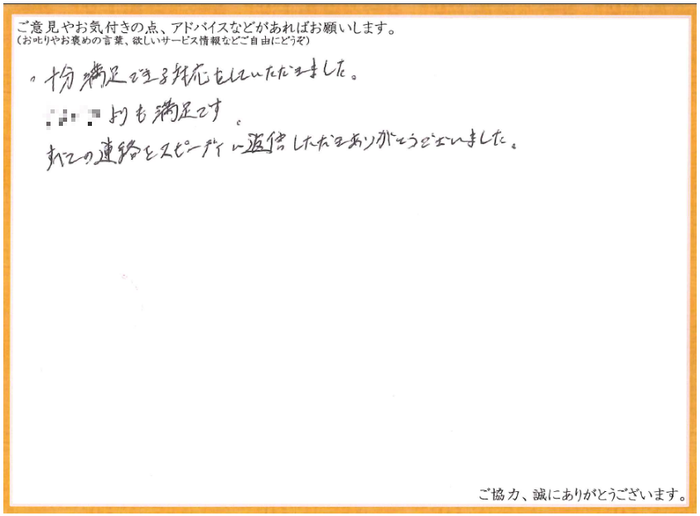 ご意見やお気付きの点、アドバイスなどがあればお願いします。
(お叱りやお褒めの言葉、欲しいサービス情報などご自由にどうぞ)
。十分満足できる対応をしていただきました。
よりも満足です。
すべての連絡をスピーディに返信しただきありがとうございました。
ご協力、誠にありがとうございます。